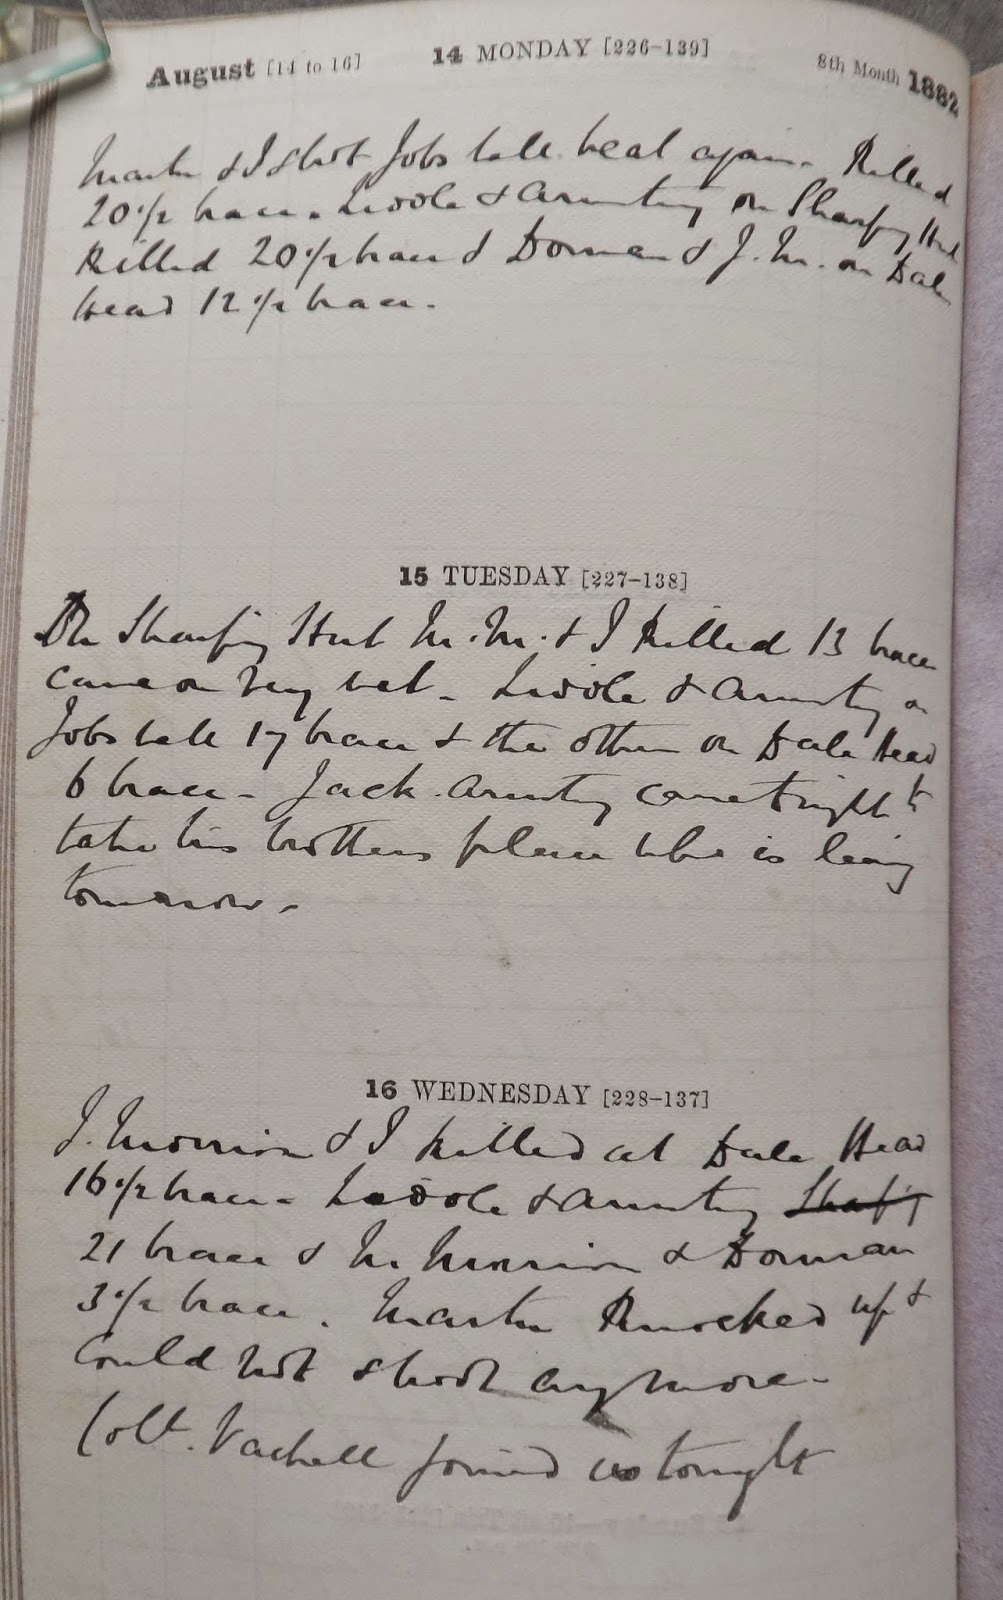 August [14 to 16] 14 MONDAY [226-139] 8th Month 1882
Martin & I shot Jobs tall beat again. Killed
20 1/2 brace. Liddle & Armitrey on Sharfing Hut
Killed 20 1/2 brace & Dorman & J. M. on Dale
Head 12 1/2 brace.
15 TUESDAY [227-138]
On Sharfing Hut M. M. & I Killed 13 brace
came on very wet - Liddle & on
Jobs tall 17 brace & the others on Dale Head
6 brace - Jack came tonight to
take his brothers place who is leaving
tomorrow -
16 WEDNESDAY [228-137]
J. Morrison & I killed at Dale Head
16 1/2 brace - Liddle &
21 brace & M. Morrison & Dorman
3 1/2 brace. Martin Knocked up &
Could not shoot anymore -
Colt. Vachell joined us tonight